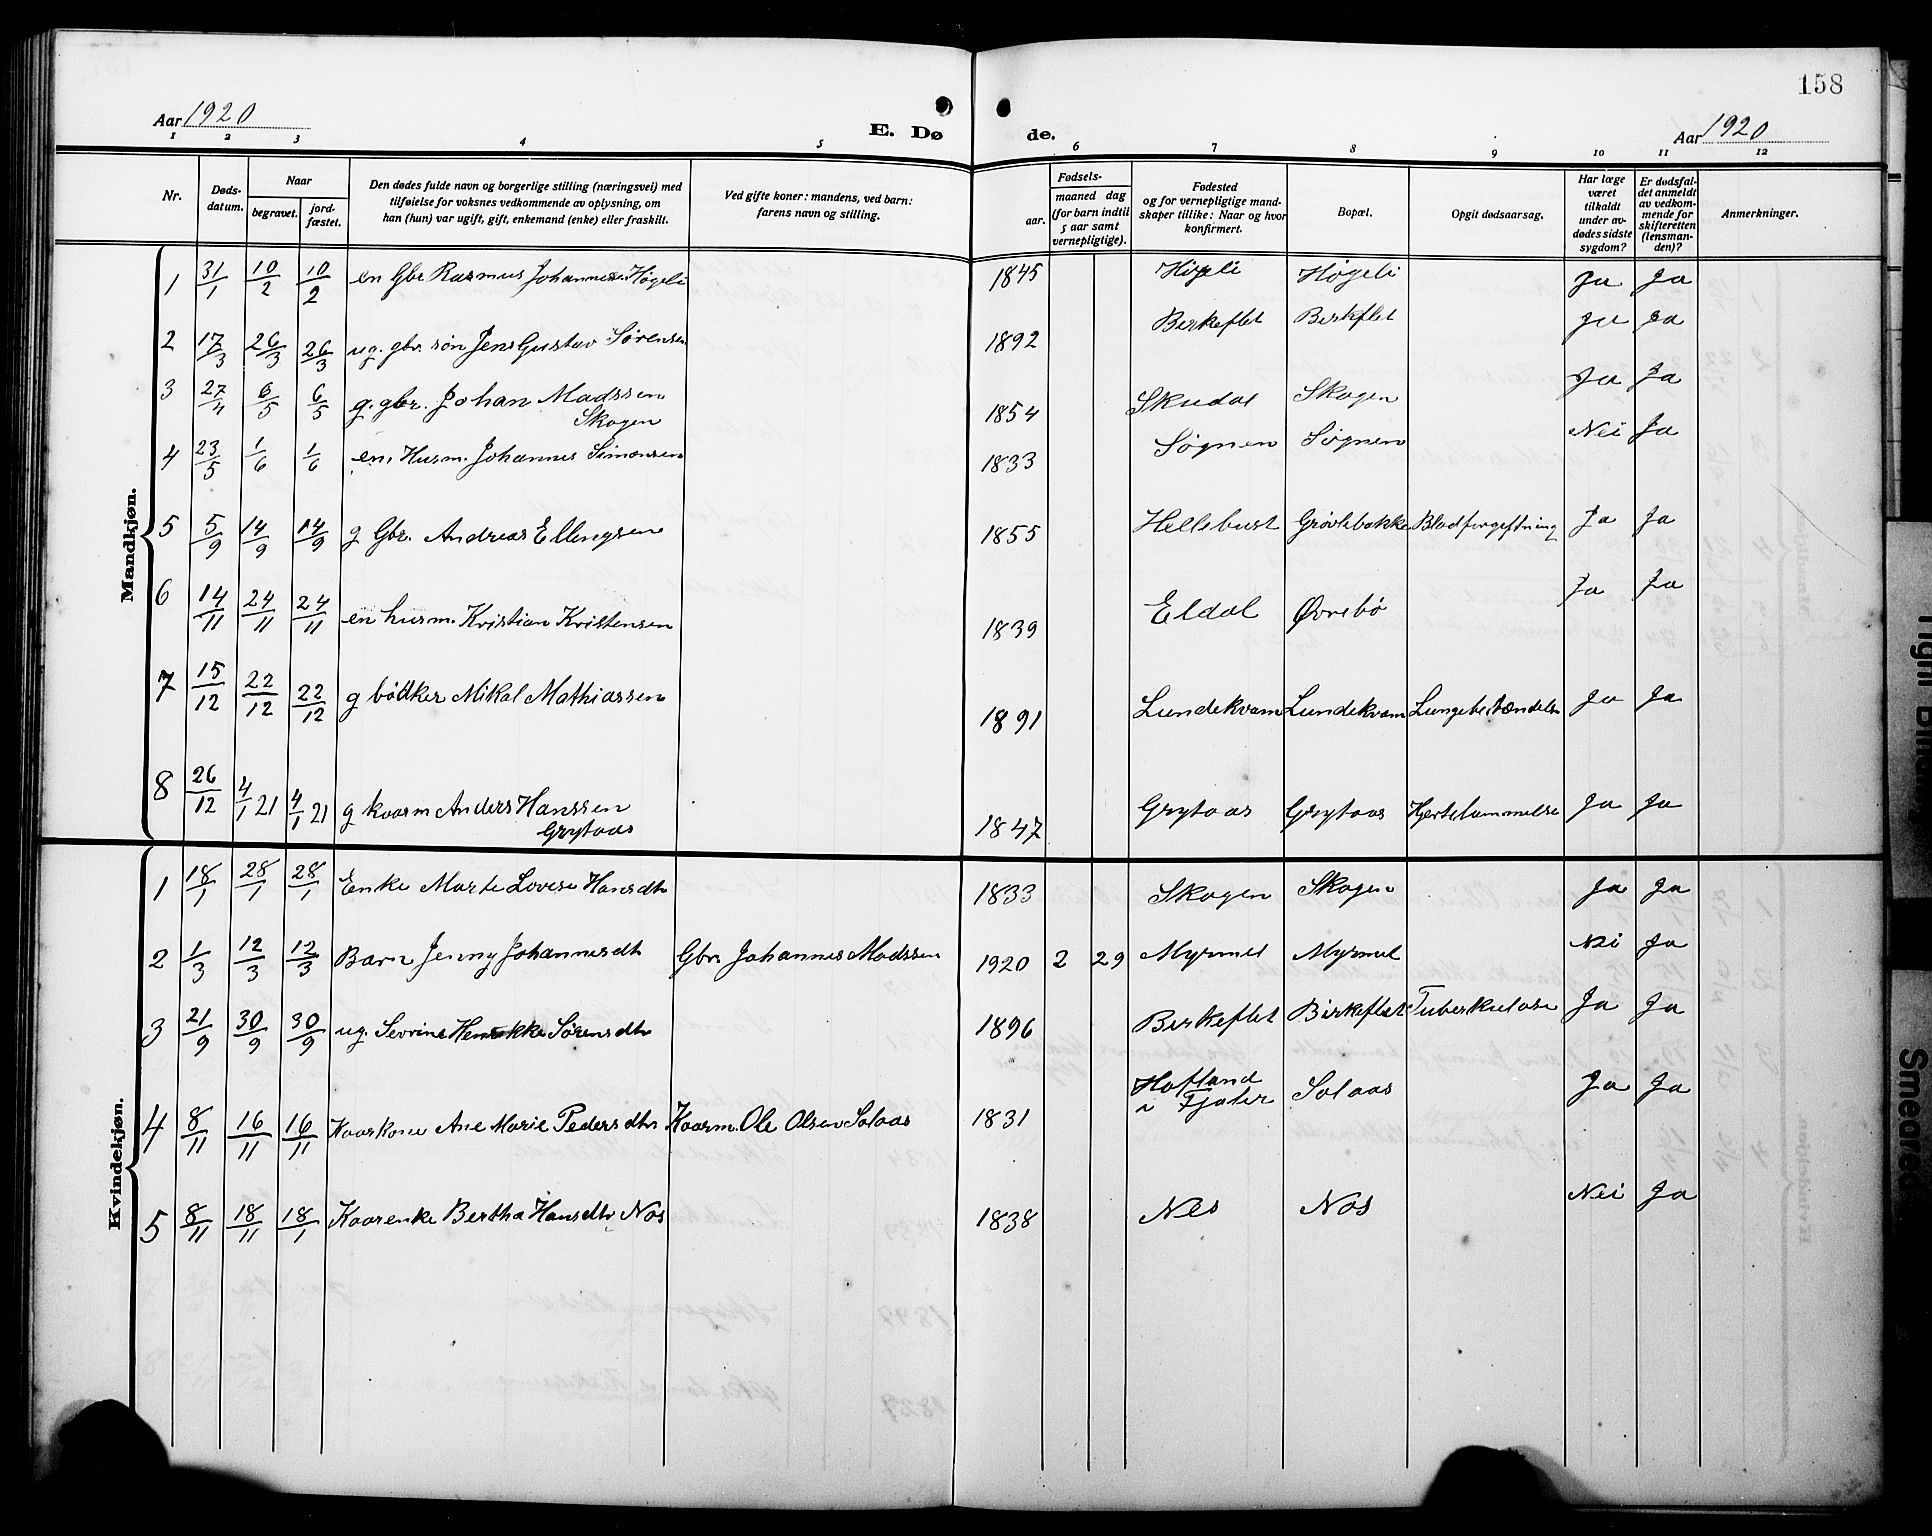 158
Aar 1920
E. Dø de.
Aar 1920
1 2 3 4 5 6 7 8 9 10 11 12
Nr. Døds-datum. Naar begravet. jord-fæstet. Den dødes fulde navn og borgerlige stilling (næringsvei) med tilføielse for voksnes vedkommende av oplysning, om han (hun) var ugift, gift, enkemand (enke) eller fraskilt. Ved gifte koner: mandens, ved barn: farens navn og stilling. Fødsels- aar. maaned dag (for barn indtil 5 aar samt vernepligtige). Fødested og for vernepligtige mand-skaper tillike: Naar og hvor konfirmert. Bopæl. Opgit dødsaarsag. Har læge været tilkaldt under av-dødes sidste sygdom? Er dødsfal-det anmeldt av vedkom-mende for skifteretten (lensman-den)? Anmerkninger.
Mandkjøn.
1 31/1 10/2 10/2 en Gbr Rasmus Johannesen Høgeli 1845 Høgeli Høgeli Ja Ja
2 17/3 26/3 26/3 ug. gbr. søn Jens Gustav Sørensen 1892 Birkeflet Birkflet Ja Ja
3 27/4 6/5 6/5 g. gbr. Johan Madssen 1854 Skudal Skogen Ja Ja
Skogen
4 23/5 1/6 1/6 en. Husm. Johannes Simonsen 1833 Søgnen Søgnen Nei Ja
5 5/9 14/9 14/9 g Gbr. Andreas Ellingsen 1855 Hellebust Grøvlebakke Blodforgiftning Ja Ja
6 14/11 24/11 24/11 en husm. Kristian Kristensen 1839 Eldal Øvrebø Ja Ja
7 15/12 22/12 22/12 g bødker Mikal Mathiassen 1891 Lundekvam Lundekvam Lungebetændelse Ja Ja
8 26/12 4/1 21 4/1 21 g kaarm Anders Hanssen 1847 Grytaas Grytaas Hjertelammelse Ja Ja
Grytaas
Kvindekjøn.
1 18/1 28/1 28/1 Enke Marte Lovise Hansdtr 1833 Skogen Skogen Ja Ja
2 1/3 12/3 12/3 Barn Jenny Johannesdtr Gbr. Johannes Madssen 1920 2 29 Myrmel Myrmel Nei Ja
3 21/9 30/9 30/9 ug. Sevrine Henrikke Sørensdtr 1896 Birkeflet Birkeflet Tuberkulose Ja Ja
4 8/11 16/11 16/11 Kaarkone Ane Marie Pedersdtr Kaarm. Ole Olsen Solaas 1831 Hafland i Fjaler Solaas Ja Ja
5 8/11 18/11 18/1 Kaarenke Bertha Hansdtr Nes 1838 Nes Nes Nei Ja
Tight Binding
Smeared